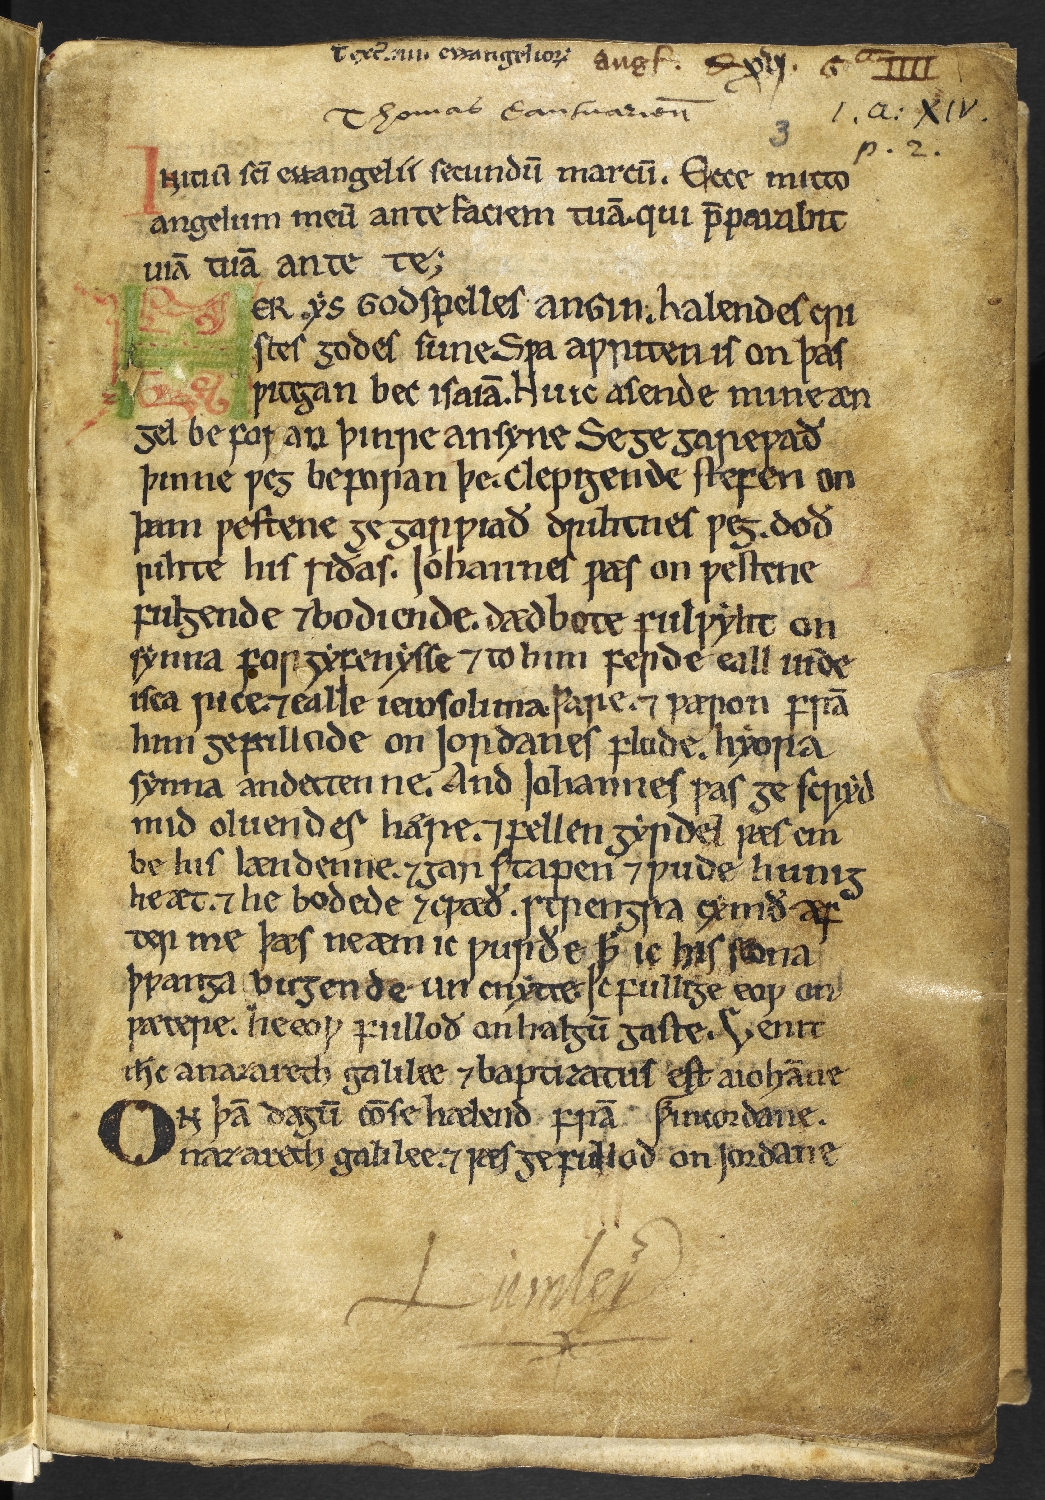 Text. iiii. ewangelior;
angl. xvi. Ga IIII
Thomas Cantuarien̄
3
1. a: XIV.
p. 2.
Initiū sc̄i ewangelii secundū marcū. Ecce mitto
angelum meū ante faciem tuā. qui p̄parabit
uiā tuā ante te;
HER ẏs Godspelles anGin. halendes cri
stes godes sune. Sƿa aƿriten is on þas
ƿitegan bec isaiā. Nu ic asende mine æn
gel be for an þinre ansyne Se ge gareƿad
þinne ƿeg beforan þe. Clepigende stefen on
þam ƿestene ge garƿiað drihtnes ƿeg. doð
rihte his sidas. Johannes ƿæs on ƿestene
fulgende ⁊ bodiende. dædbote fulƿẏht on
sẏnna forgẏfenẏsse ⁊ to him ferde eall iude
isca rice. ⁊ ealle ierosolima ƿare. ⁊ ƿæron frā
him gefullode on Jordanes flode. hẏora
sẏnna andettenne. And Johannes ƿas ge scrẏd
mid oluendes hære. ⁊ fellen gẏrdel ƿæs em
be his lændenne. ⁊ garstapen ⁊ ƿude hunig
he æt. ⁊ he bodede ⁊ cƿæð. strengra cẏmð æf
ter me þæs ne æm ic ƿurðe þ̄ ic his scona
þƿanga bugende un cnẏtte. Ic fullige eoƿ on
ƿætere. he eoƿ fulloð on halgū gaste. Venit
ih̄c a nazareth galilee ⁊ baptizatus est a iohāne
ON þā dagū cō se hælend frā in iordane.
nazareth galilee. ⁊ ƿæs ge fullod on Jordane
Lumley